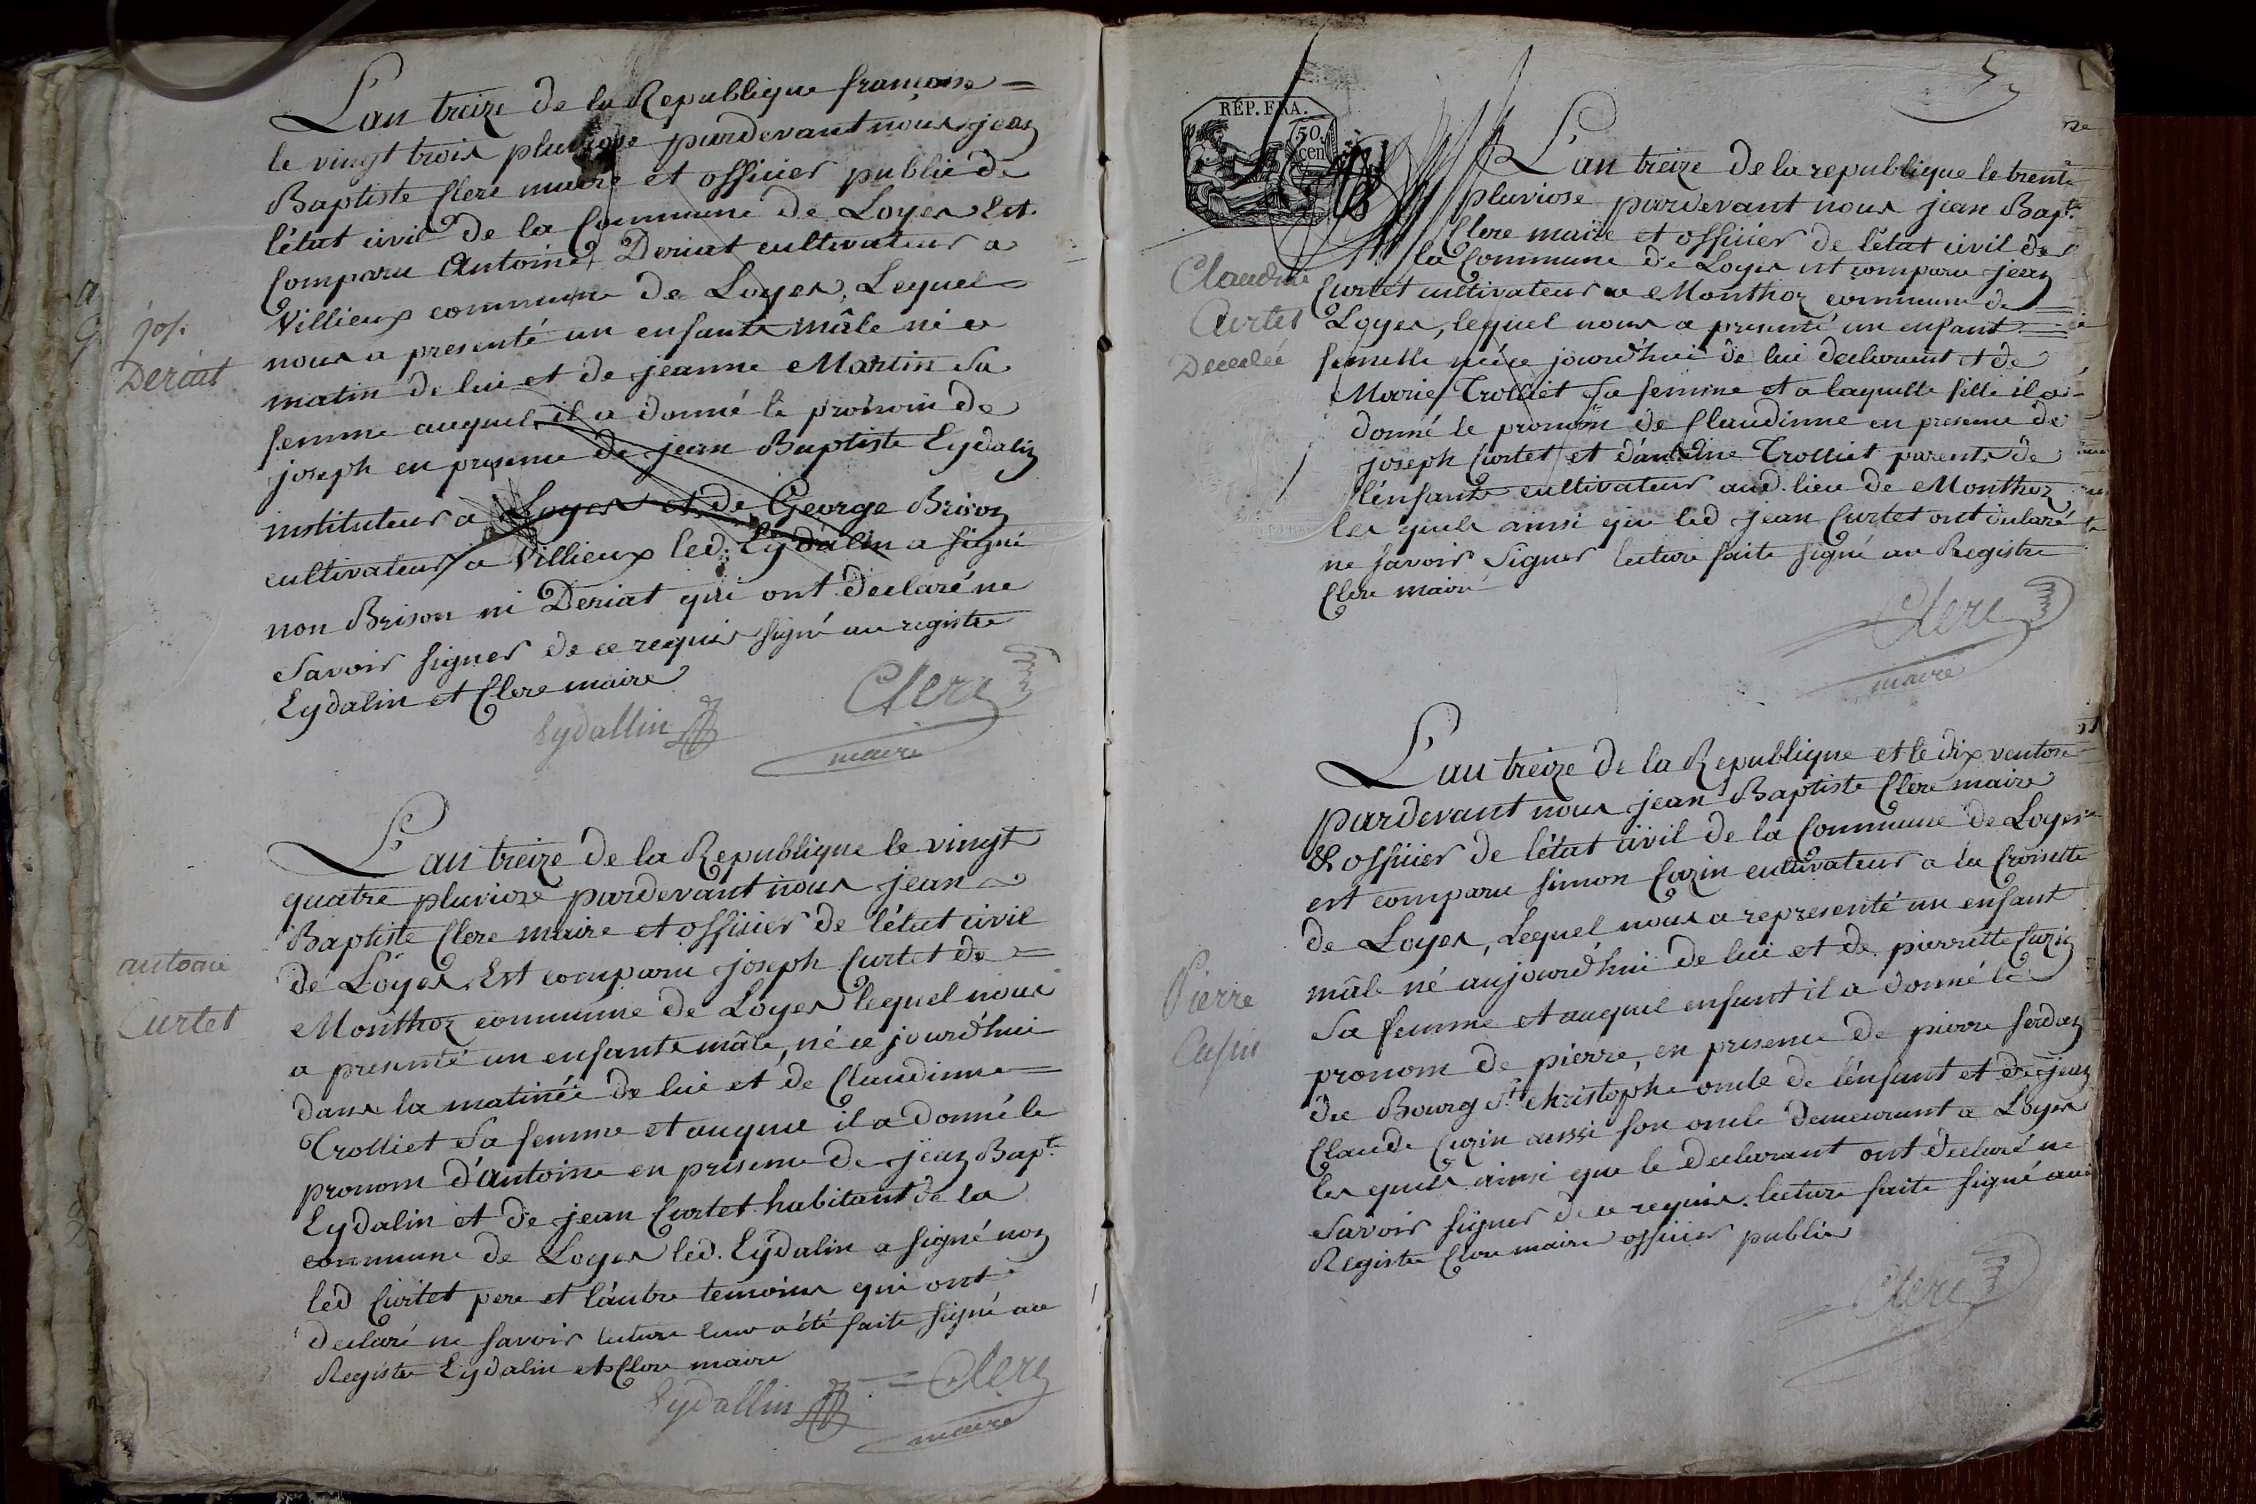 L'an treize de la Republique francoise =
le vingt trois pluviose pardevant nous jean
Baptiste Clere maire et officier public de
l'état civil de la Commune de Loyes Est
Comparu Antoine Deriat cultivateur a
Villieux commune de Loyes, Lequel =
nous a presenté un enfant mâle né ce
matin de lui et de jeanne Martin sa
femme auquel il a donné le pronom de
joseph en presence de jean Baptiste Eydalin
instituteur a Loyes et de George Brison
cultivateur a Villieux led. Eydalin a signé
non Brison ni Deriat qui ont declaré ne
savoir signer de ce requis signé au registre
Eydalin et Clere maire
Eydallin
Clere
maire
jos.
Deriat
L'an treize de la Republique le vingt
quatre pluviose pardevant nous jean
Baptiste Clere maire et officier de l'état civil
de Loyes, Est comparu joseph Curtet de =
Monthoz commune de Loyes lequel nous
a presenté un enfant mâle, né ce jourd'hui
dans la matinée de lui et de Claudinne =
Trolliet sa femme et auquel il a donné le
pronom d'antoine en presence de jean Bapte.
Eydalin et de jean Curtet habitant de la
commune de Loyes led. Eydalin a signé non
led Curtet pere et l'autre temoins qui ont
declaré ne savoir lecture leur a été faite signé au
Registre Eydalin et Clere maire
Eydallin
Clere
maire
antoine
Curtet
5
REP. FRA.
50.
cen
L'an treize de la republique le trente
pluviose pardevant nous jean Bapte.
Clere maire et officier de l'état civil de
la Commune de Loyes est comparu jean
Curtet cultivateur a Monthoz commune de
Loyes, lequel nous a presenté un enfant =
femelle née ce jourd'hui de lui declarant et de
Marie Trolliet sa femme et a laquelle fille il a
donné le pronom de Claudinne en presence de
joseph Curtet et d'antoine Trolliet parents de
l'enfant cultivateur aud. lieu de Monthoz
les quels ainsi que led jean Curtet ont declaré
ne savoir signer lecture faite signé au Registre
Clere maire
Clere
maire
Claudine
Curtet
Decedée
L'an treize de la Republique et le dix ventose
pardevant nous jean Baptiste Clere maire
& officier de l'état civil de la Commune de Loyes
est comparu simon Cazin cultivateur a la Croisette
de Loyes, Lequel nous a representé un enfant
mâle né aujourd'hui de lui et de pierrette
sa femme et auquel enfant il a donné le
pronom de pierre, en presence de pierre
du Bourg St. christophe oncle de l'enfant et de jean
Claude Cazin aussi son oncle demeurant a Loyes
les quels ainsi que le declarant ont declaré ne
savoir signer de ce requis. lecture faite signé au
Registre Clere maire officier public
Clere
Pierre